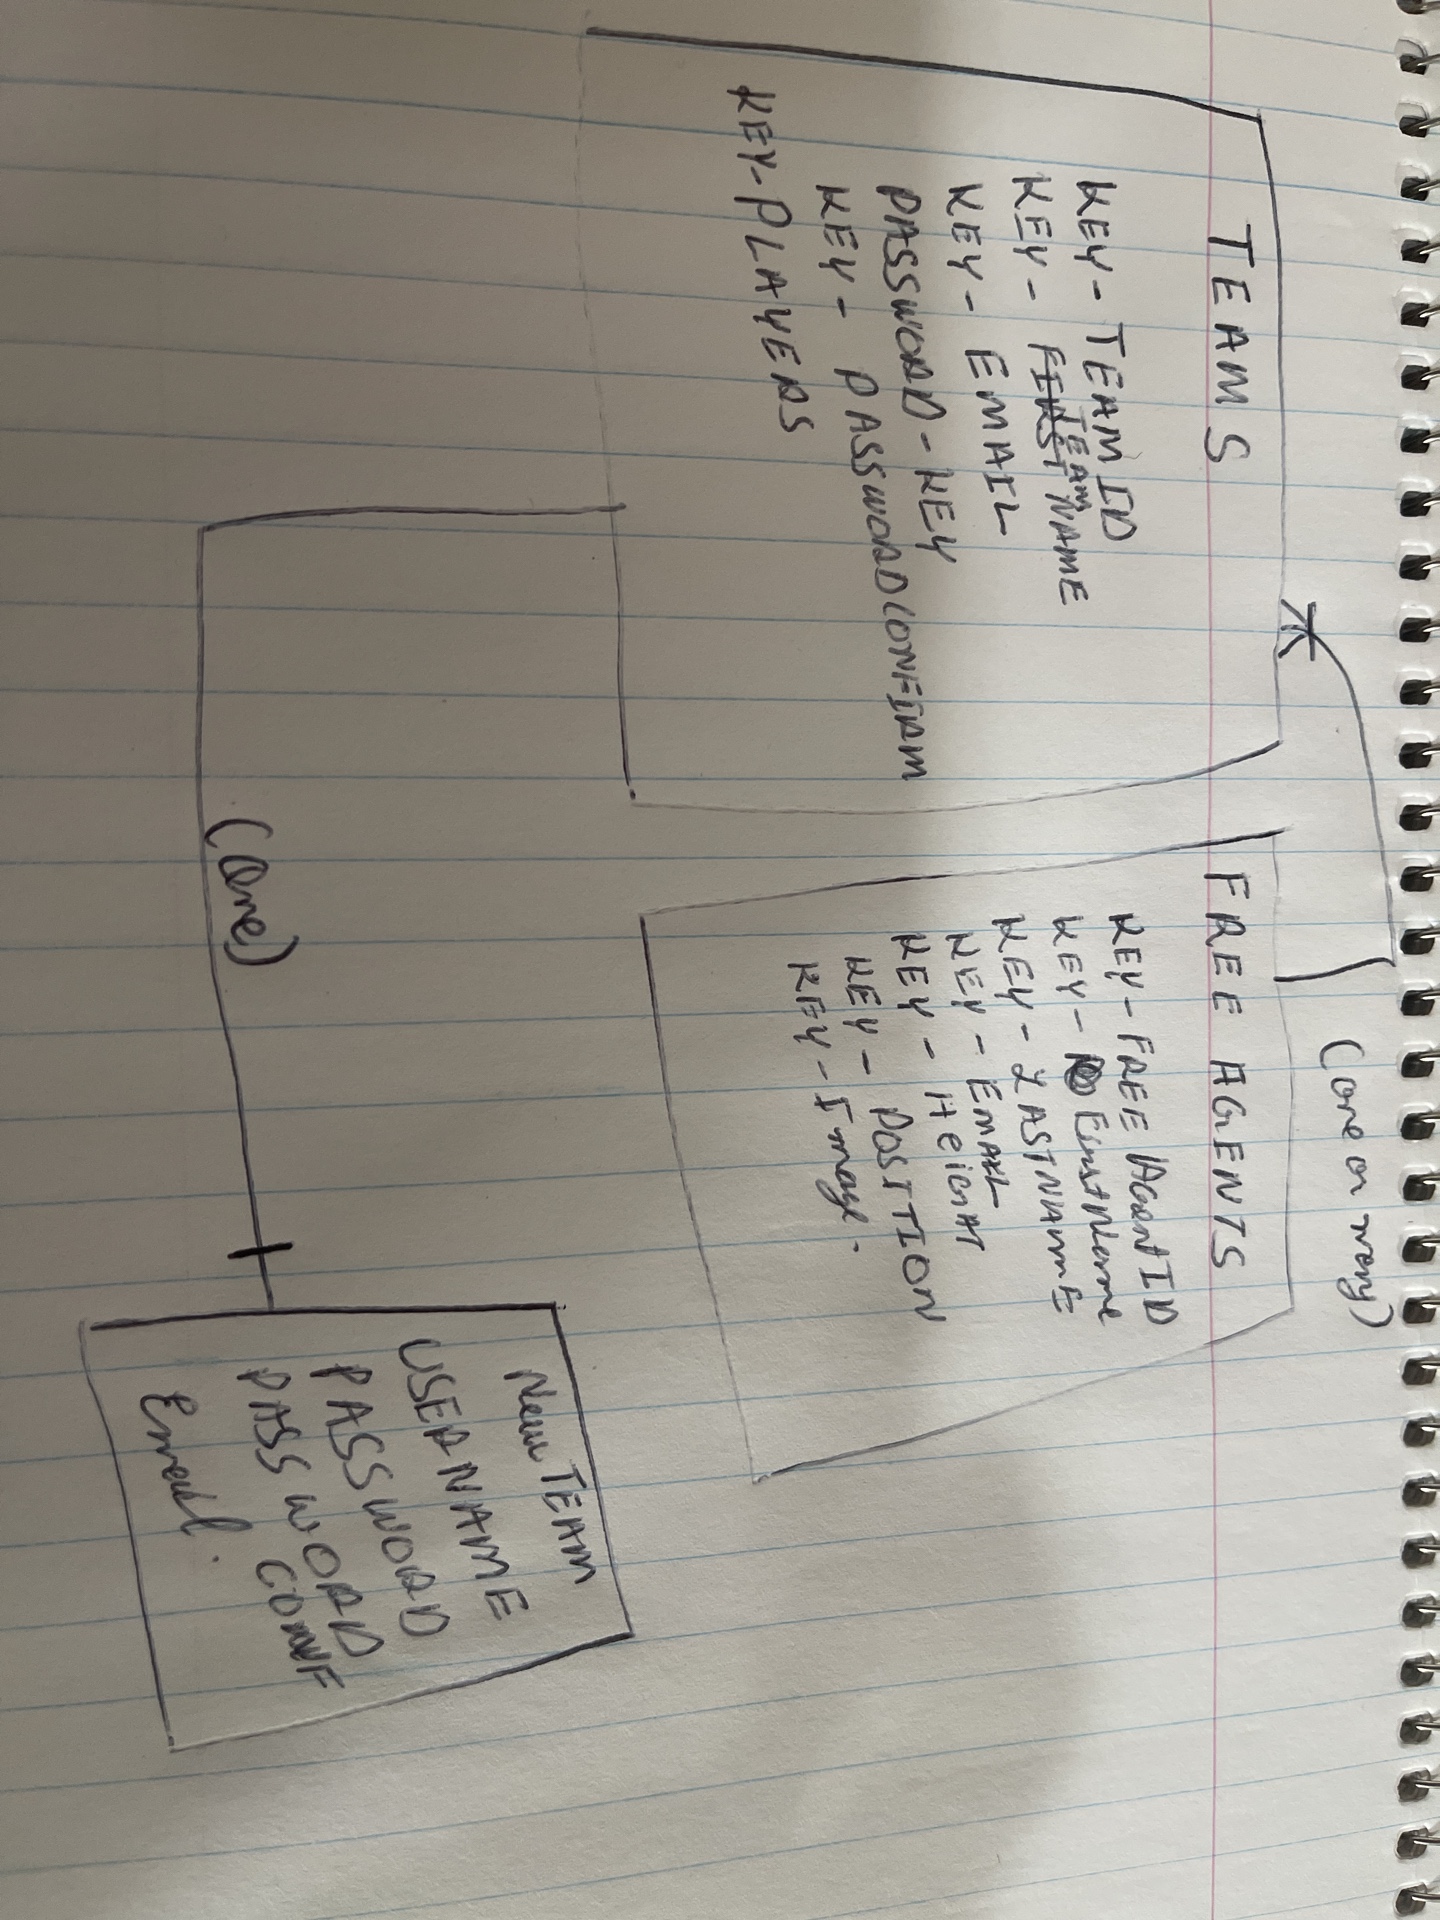 (one or many)
TEAMS
KEY - TEAM ID
KEY - FIRST TEAM NAME
KEY - EMAIL
PASSWORD - KEY
KEY - PASSWORDCONFIRM
KEY - PLAYERS
FREE AGENTS
KEY - FREE AGent ID
KEY - FirstName
KEY - LASTNAME
KEY - EMAIL
KEY - HeiGHT
KEY - POSITION
KEY - Image.
(one)
New TEAM
USERNAME
PASSWORD
PASSWORD CONF
Email.